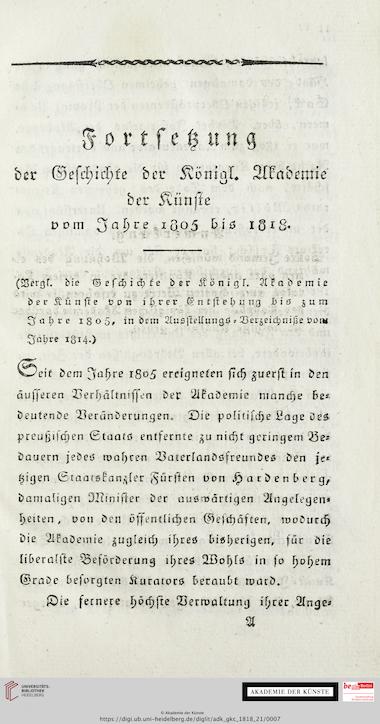 Fortsetzung
der Geschichte der Königl. Akademie
der Künste
vom Jahre 1805 bis 1818.
(Vergl. die Geschichte der Königl. Akademie
der Künste von ihrer Entstehung bis zum
Jahre 1805, in dem Ausstellungs-Verzeichniße vom
Jahre 1814.)
Seit dem Jahre 1805 ereigneten sich zuerst in den
äusseren Verhältnissen der Akademie manche be-
deutende Veränderungen. Die politische Lage des
preußischen Staats entfernte zu nicht geringem Be-
dauern jedes wahren Vaterlandsfreundes den je-
tzigen Staatskanzler Fürsten von Hardenberg,
damaligen Minister der auswärtigen Angelegen-
heiten, von den öffentlichen Geschäften, wodurch
die Akademie zugleich ihres bisherigen, für die
liberalste Beförderung ihres Wohls in so hohem
Grade besorgten Kurators beraubt ward.
Die fernere höchste Verwaltung ihrer Ange-
A
UNIVERSITÄTS-
BIBLIOTHEK
HEIDELBERG
AKADEMIE DER KÜNSTE
© Akademie der Künste
https://digi.ub.uni-heidelberg.de/diglit/adk_gkc_1818_21/0007